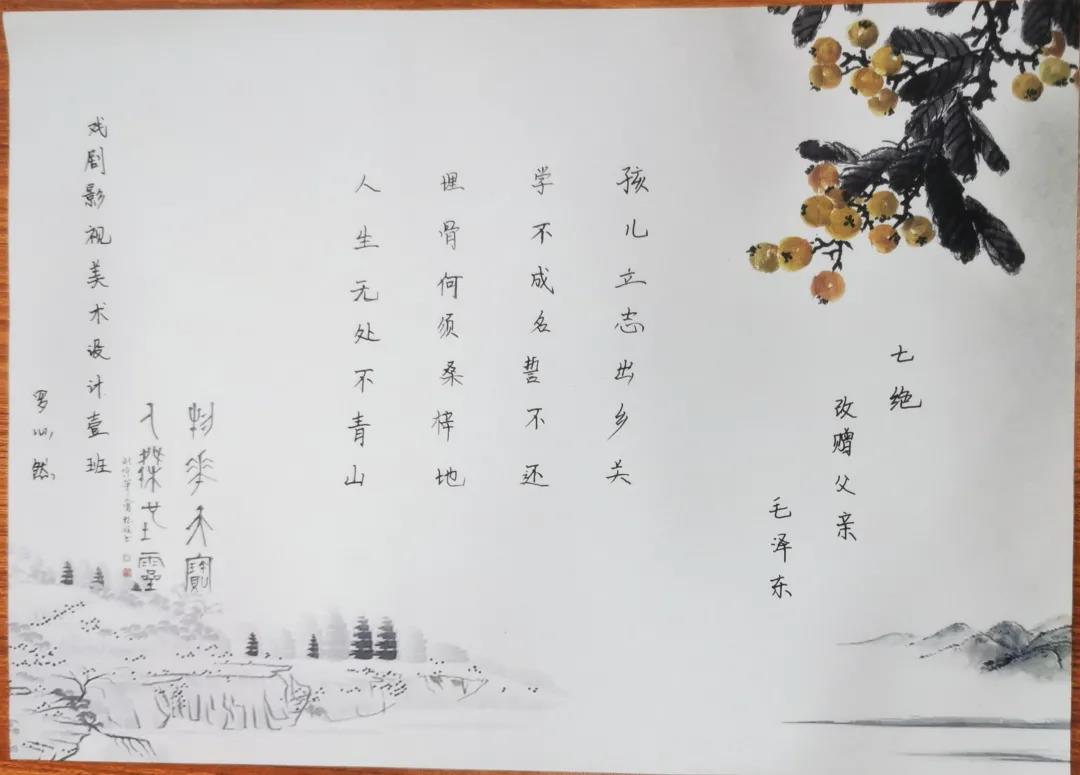 七绝
改赠父亲
毛泽东
孩儿立志出乡关
学不成名誓不还
埋骨何须桑梓地
人生无处不青山
物华天宝
人杰地灵
戏剧影视美术设计壹班
罗心然